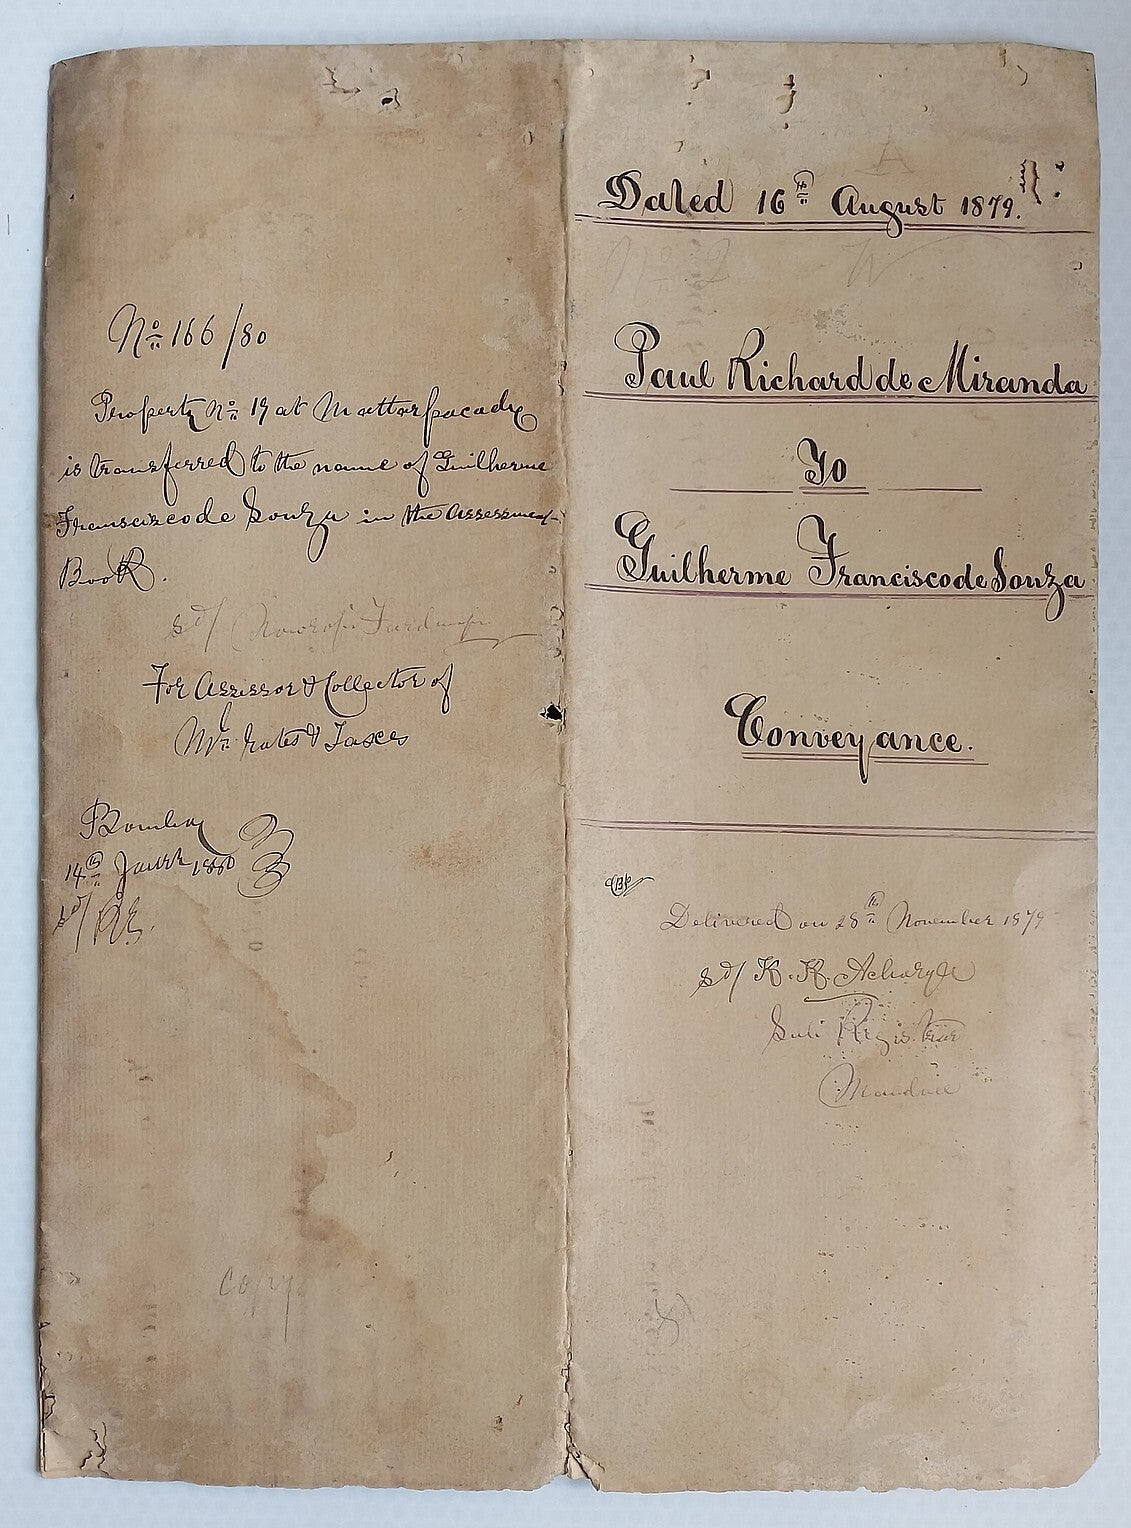 No. 166/80
Property No. 19 at Mattarpacady
is transferred to the name of Guilherme
Franscisco de Souza in the Assessment
Book.
Sd/ Nowrosji Furdunji
For Assessor & Collector of
Ml. Rates & Taxes
Bombay
14th Jany 1880
sd/
copy
A
Dated 16th August 1879.
No. 2
Paul Richard de Miranda
To
Guilherme Francisco de Souza
Conveyance.
Delivered on 28th November 1879
Sd/ K. K. Acharya
Sub Registrar